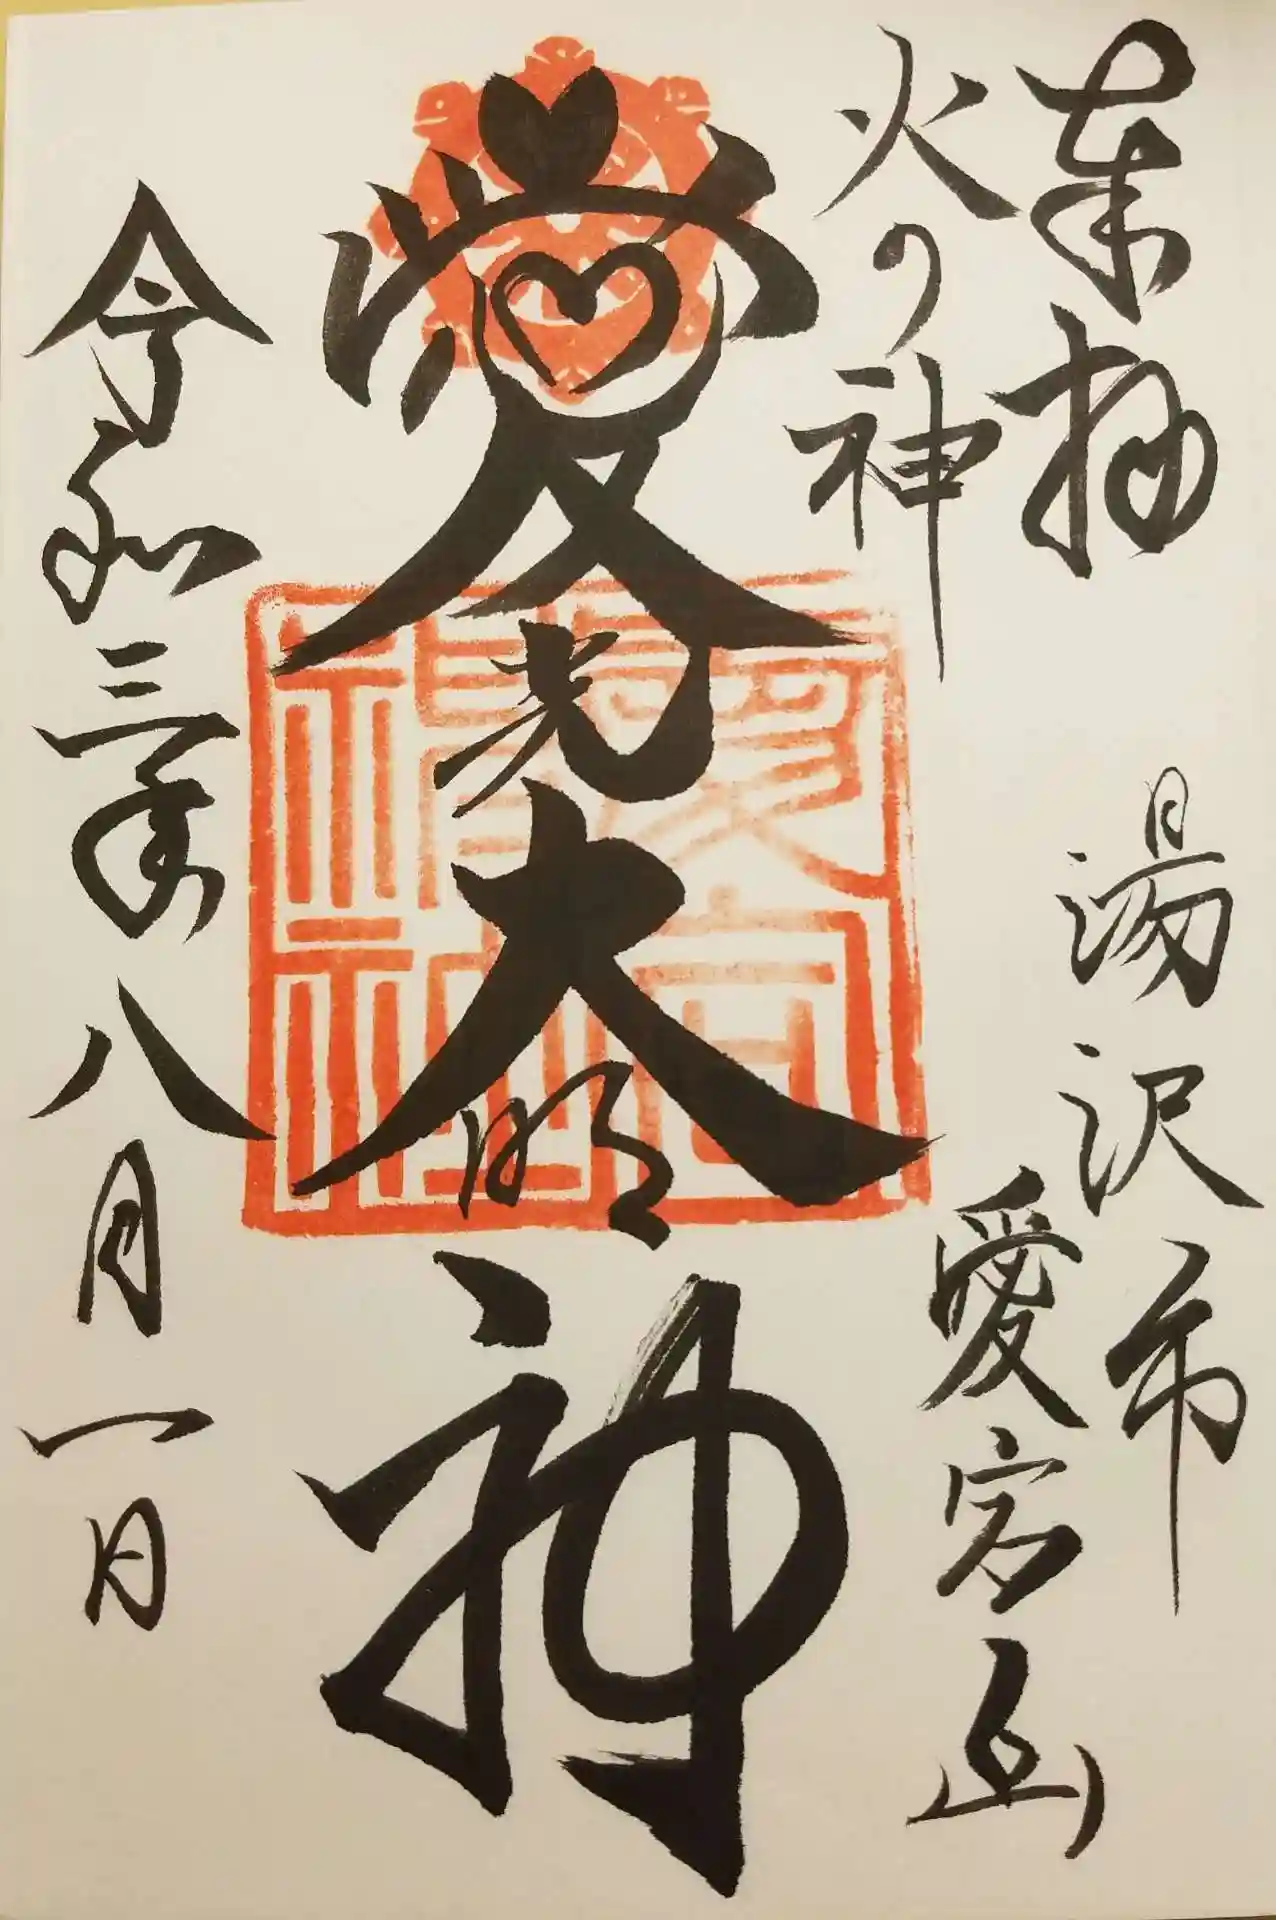 奉拝
湯沢市
火の神
愛宕山
愛光大明神
愛宕神社
令和三年八月一日